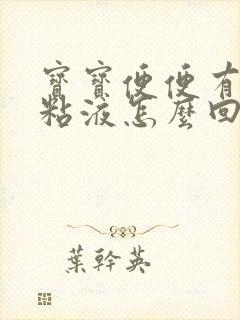 寶寶便便有
粘液怎麼回
葉幹英